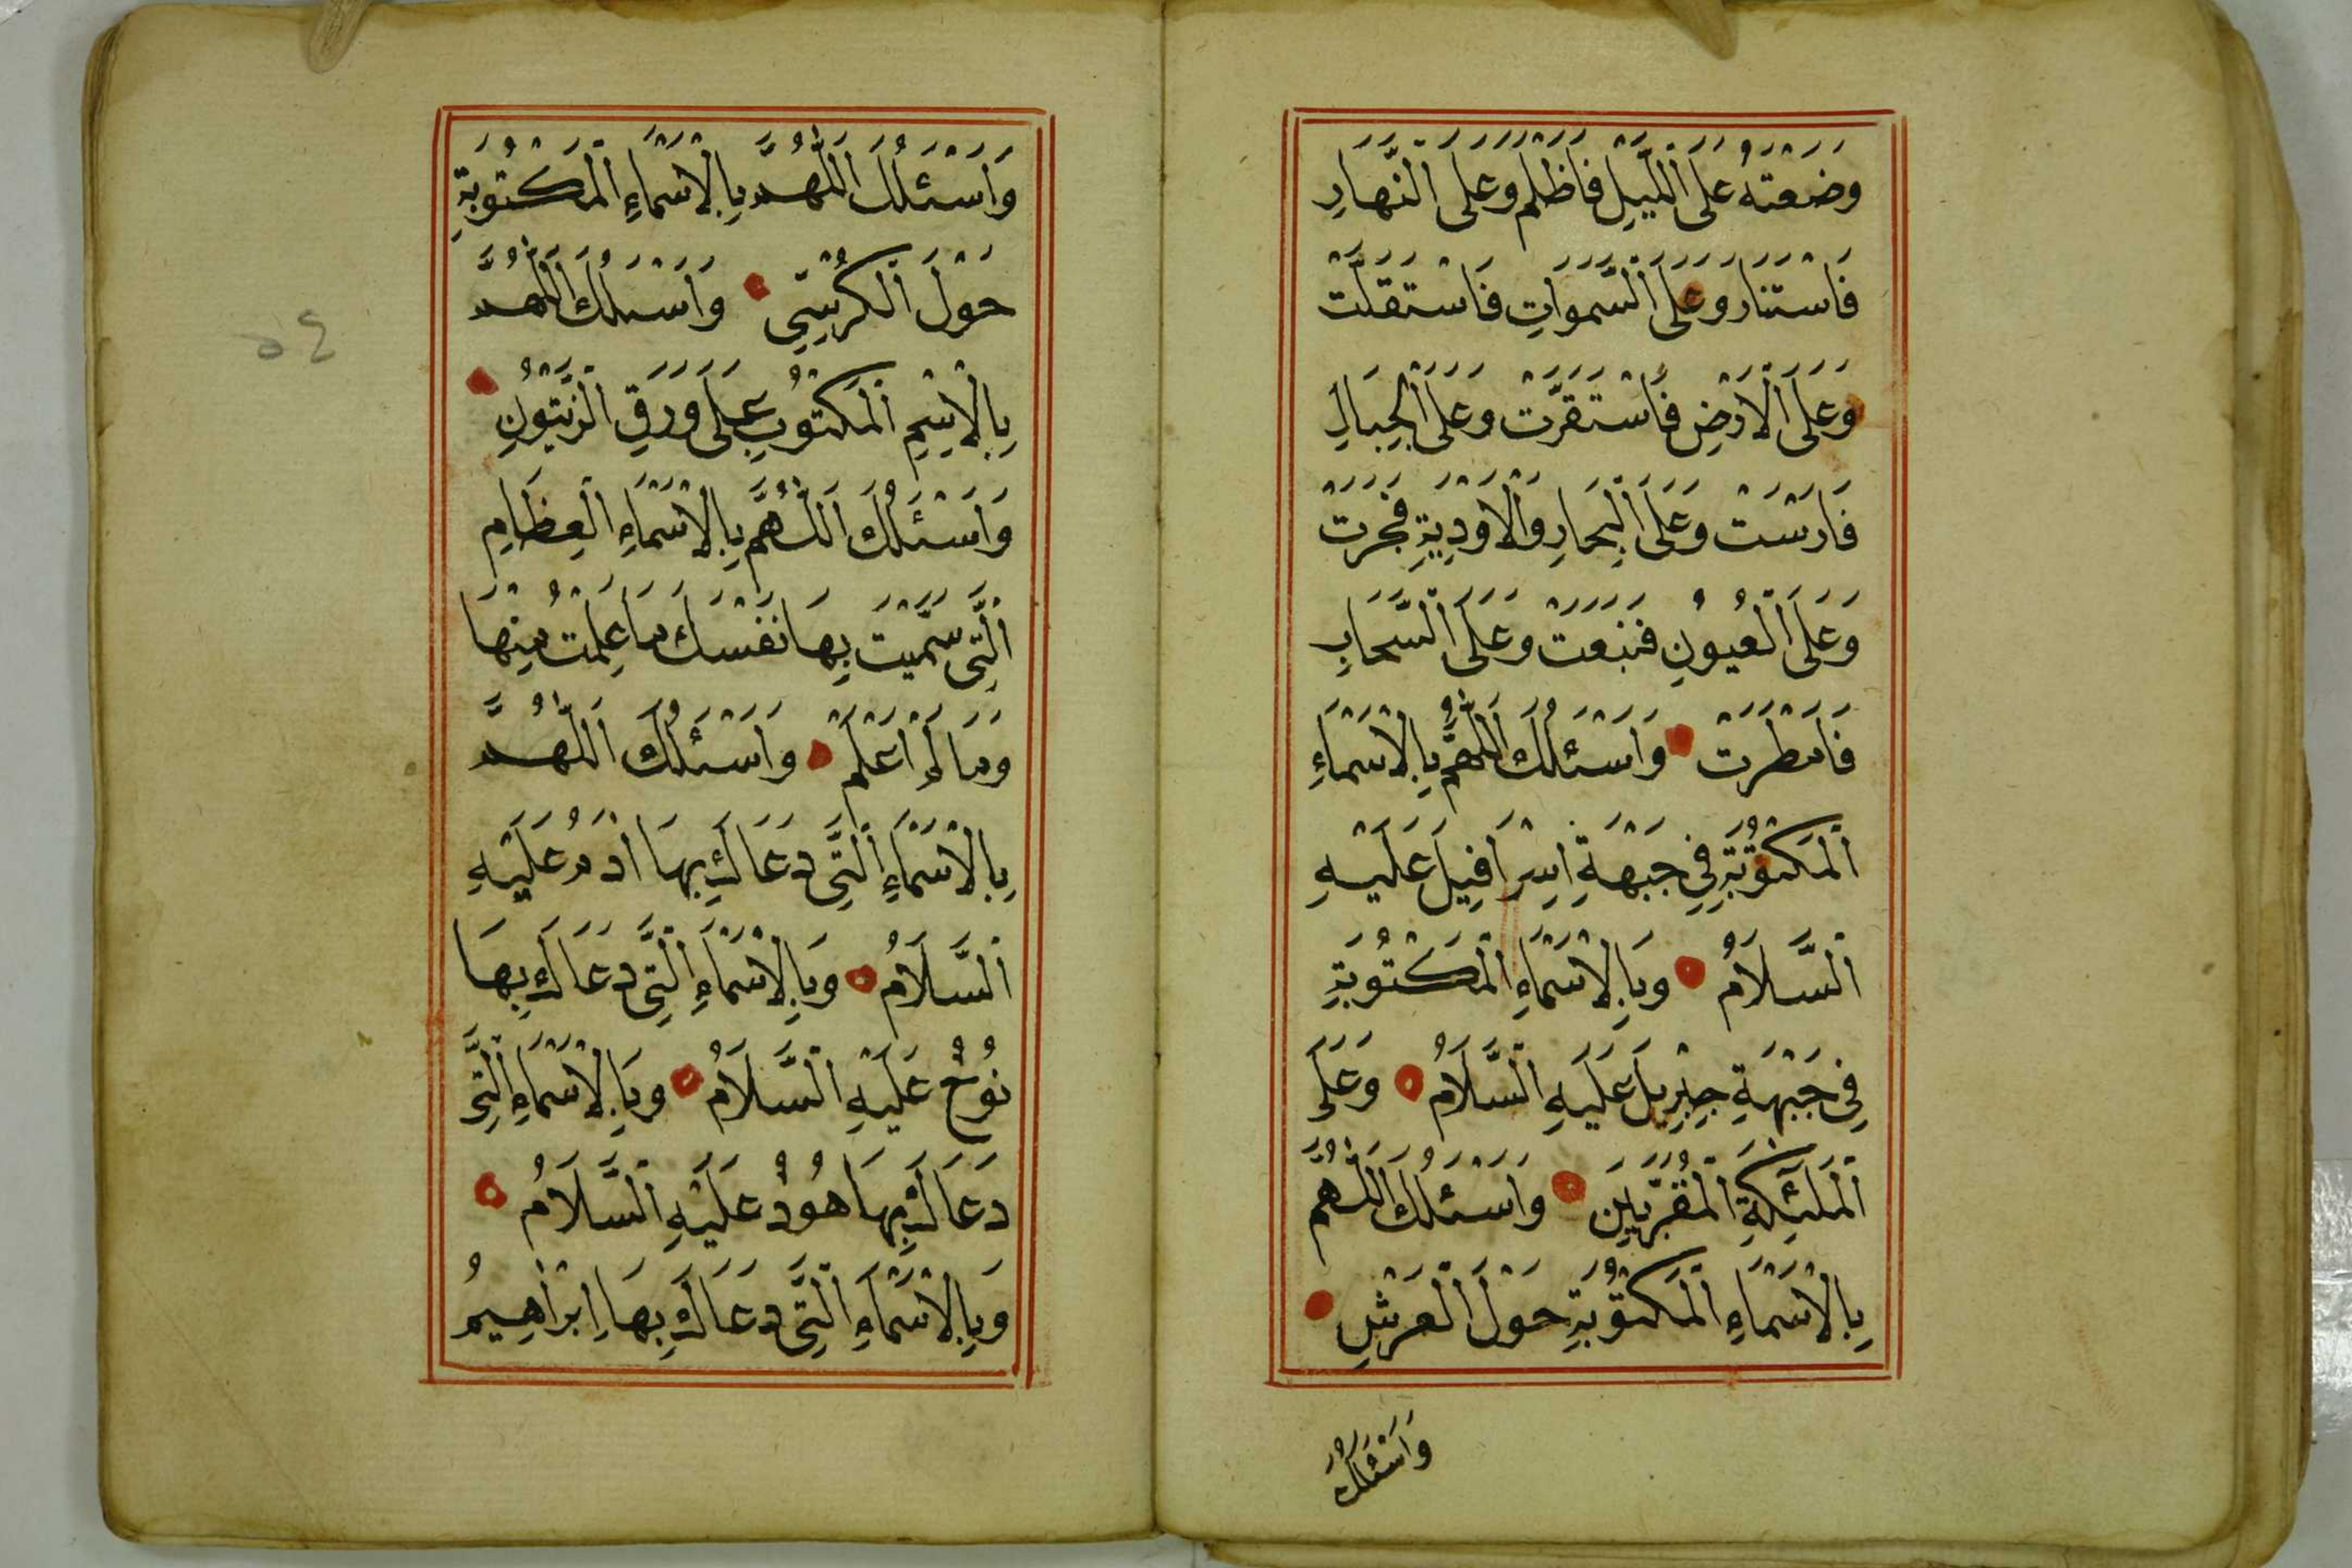 وَضَعْتَهُ عَلَى اللَّيْلِ فَاَظْلَمَ وَعَلَى النَّهَارِ
فَاسْتَنَارَ وَعَلَى السَّمٰوَاتِ فَاسْتَقَلَّتْ
وَعَلَى الْاَرْضِ فَاسْتَقَرَّتْ وَعَلَى الْجِبَالِ
فَارَسَتْ وَعَلَى الْبِحَارِ وَالْاَوْدِيَةِ فَجَرَتْ
وَعَلَى الْعُيُونِ فَنَبَعَتْ وَعَلَى السَّحَابِ
فَاَمْطَرَتْ وَاَسْئَلُكَ اللّٰهُمَّ بِالْاَسْمَاءِ
الْمَكْتُوبَةِ فِي جَبْهَةِ اِسْرَافِيلَ عَلَيْهِ
السَّلَامُ وَبِالْاَسْمَاءِ الْمَكْتُوبَةِ
فِي جَبْهَةِ جِبْرِيلَ عَلَيْهِ السَّلَامُ وَعَلَى
الْمَلٰئِكَةِ الْمُقَرَّبِينَ وَاَسْئَلُكَ اللّٰهُمَّ
بِالْاَسْمَاءِ الْمَكْتُوبَةِ حَوْلَ الْعَرْشِ
وَاَسْئَلُكَ
وَاَسْئَلُكَ اللّٰهُمَّ بِالْاَسْمَاءِ الْمَكْتُوبَةِ
حَوْلَ الْكُرْسِيِّ وَاَسْئَلُكَ اللّٰهُمَّ
بِالْاِسْمِ الْمَكْتُوبِ عَلَى وَرَقِ الزَّيْتُونِ
وَاَسْئَلُكَ اللّٰهُمَّ بِالْاَسْمَاءِ الْعِظَامِ
الَّتِي سَمَّيْتَ بِهَا نَفْسَكَ مَا عَلِمْتُ مِنْهَا
وَمَا لَمْ اَعْلَمْ وَاَسْئَلُكَ اللّٰهُمَّ
بِالْاَسْمَاءِ الَّتِي دَعَاكَ بِهَا اٰدَمُ عَلَيْهِ
السَّلَامُ وَبِالْاَسْمَاءِ الَّتِي دَعَاكَ بِهَا
نُوحٌ عَلَيْهِ السَّلَامُ وَبِالْاَسْمَاءِ الَّتِي
دَعَاكَ بِهَا هُودٌ عَلَيْهِ السَّلَامُ
وَبِالْاَسْمَاءِ الَّتِي دَعَاكَ بِهَا اِبْرَاهِيمُ